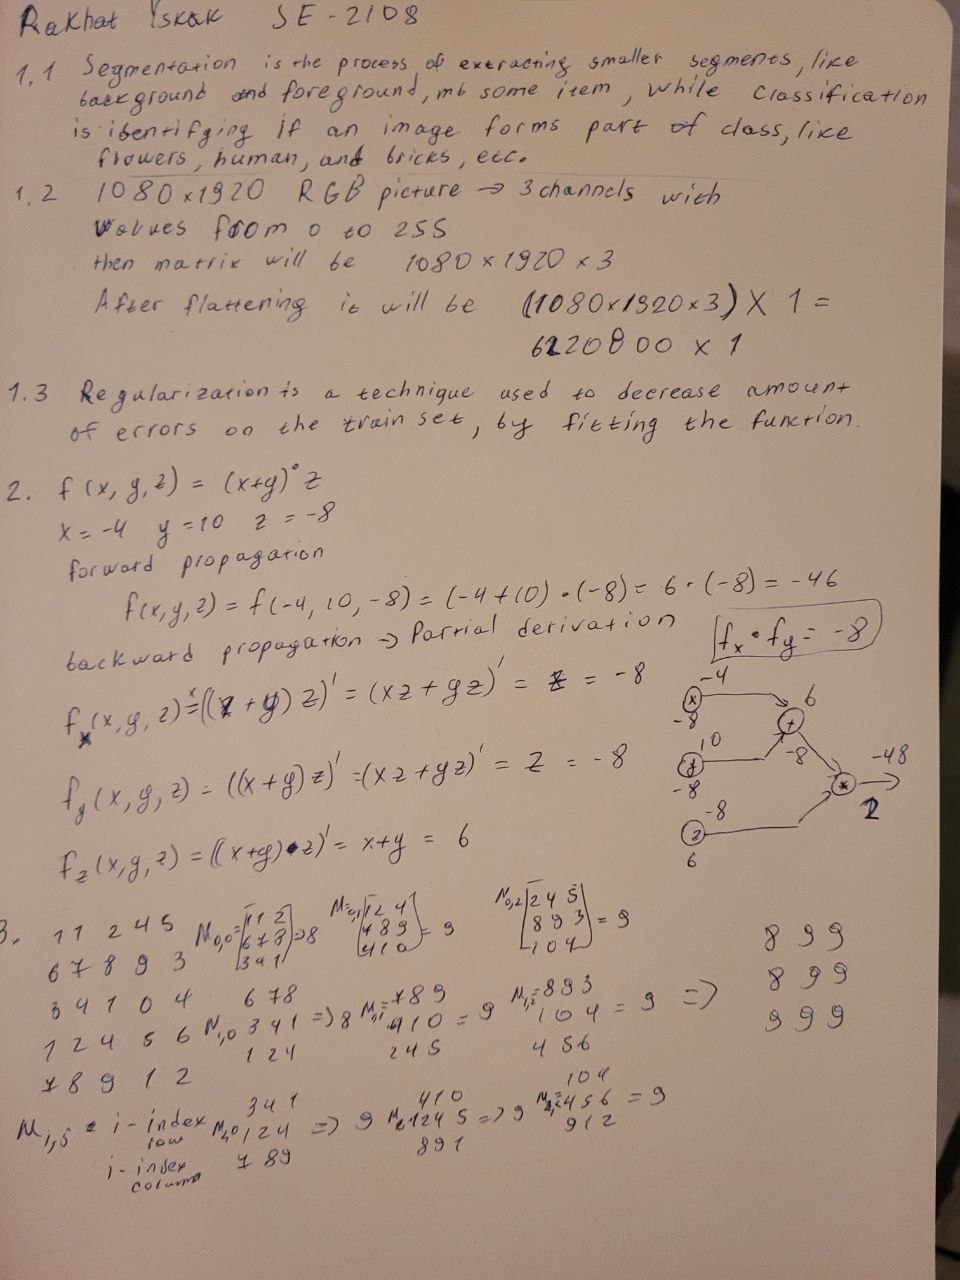 Rakhat Yskak SE-2108
1,1 Segmentation is the process of extracting smaller segments, like
background and foreground, mb some item, while classification
is identifying if an image forms part of class, like
flowers, human, and bricks, etc.
1,2 1080x1920 RGB picture → 3 channels with
values from 0 to 255
then matrix will be 1080 x 1920 x 3
After flattening it will be (1080x1920x3) X 1 =
6220800 x 1
1.3 Regularization is a technique used to decrease amount
of errors on the train set, by fitting the function.
2. f(x, y, z) = (x+y)·z
x = -4 y = 10 z = -8
forward propagation
f(x,y,z) = f(-4, 10, -8) = (-4+10)·(-8) = 6·(-8) = -46
backward propagation → Partial derivation
fx·fy = -8
fx(x,y,z) = ((x+y)z)' = (xz+yz)' = z = -8
fy(x,y,z) = ((x+y)z)' = (xz+yz)' = z = -8
fz(x,y,z) = ((x+y)·z)' = x+y = 6
-4
x
-8
6
+
-8
10
y
-8
-8
z
6
*
-48
1
3. 1 1 2 4 5
6 7 8 9 3
3 4 1 0 4
1 2 4 5 6
7 8 9 1 2
M0,0 = [1 1 2
6 7 8
3 4 1] => 8
M0,1 = [1 2 4
7 8 9
4 1 0] = 9
M0,2 [2 4 5
8 9 3
1 0 4] = 9
M1,0 6 7 8
3 4 1 => 8
1 2 4
M1,1 = 7 8 9
4 1 0 = 9
2 4 5
M1,2 = 8 9 3
1 0 4 = 9
4 5 6
=>
8 9 9
8 9 9
9 9 9
Mi,j i - index
row
i - index
column
M2,0 3 4 1
1 2 4 => 9
7 8 9
M2,1 4 1 0
2 4 5 => 9
8 9 1
M2,2 = 1 0 4
4 5 6 = 9
9 1 2